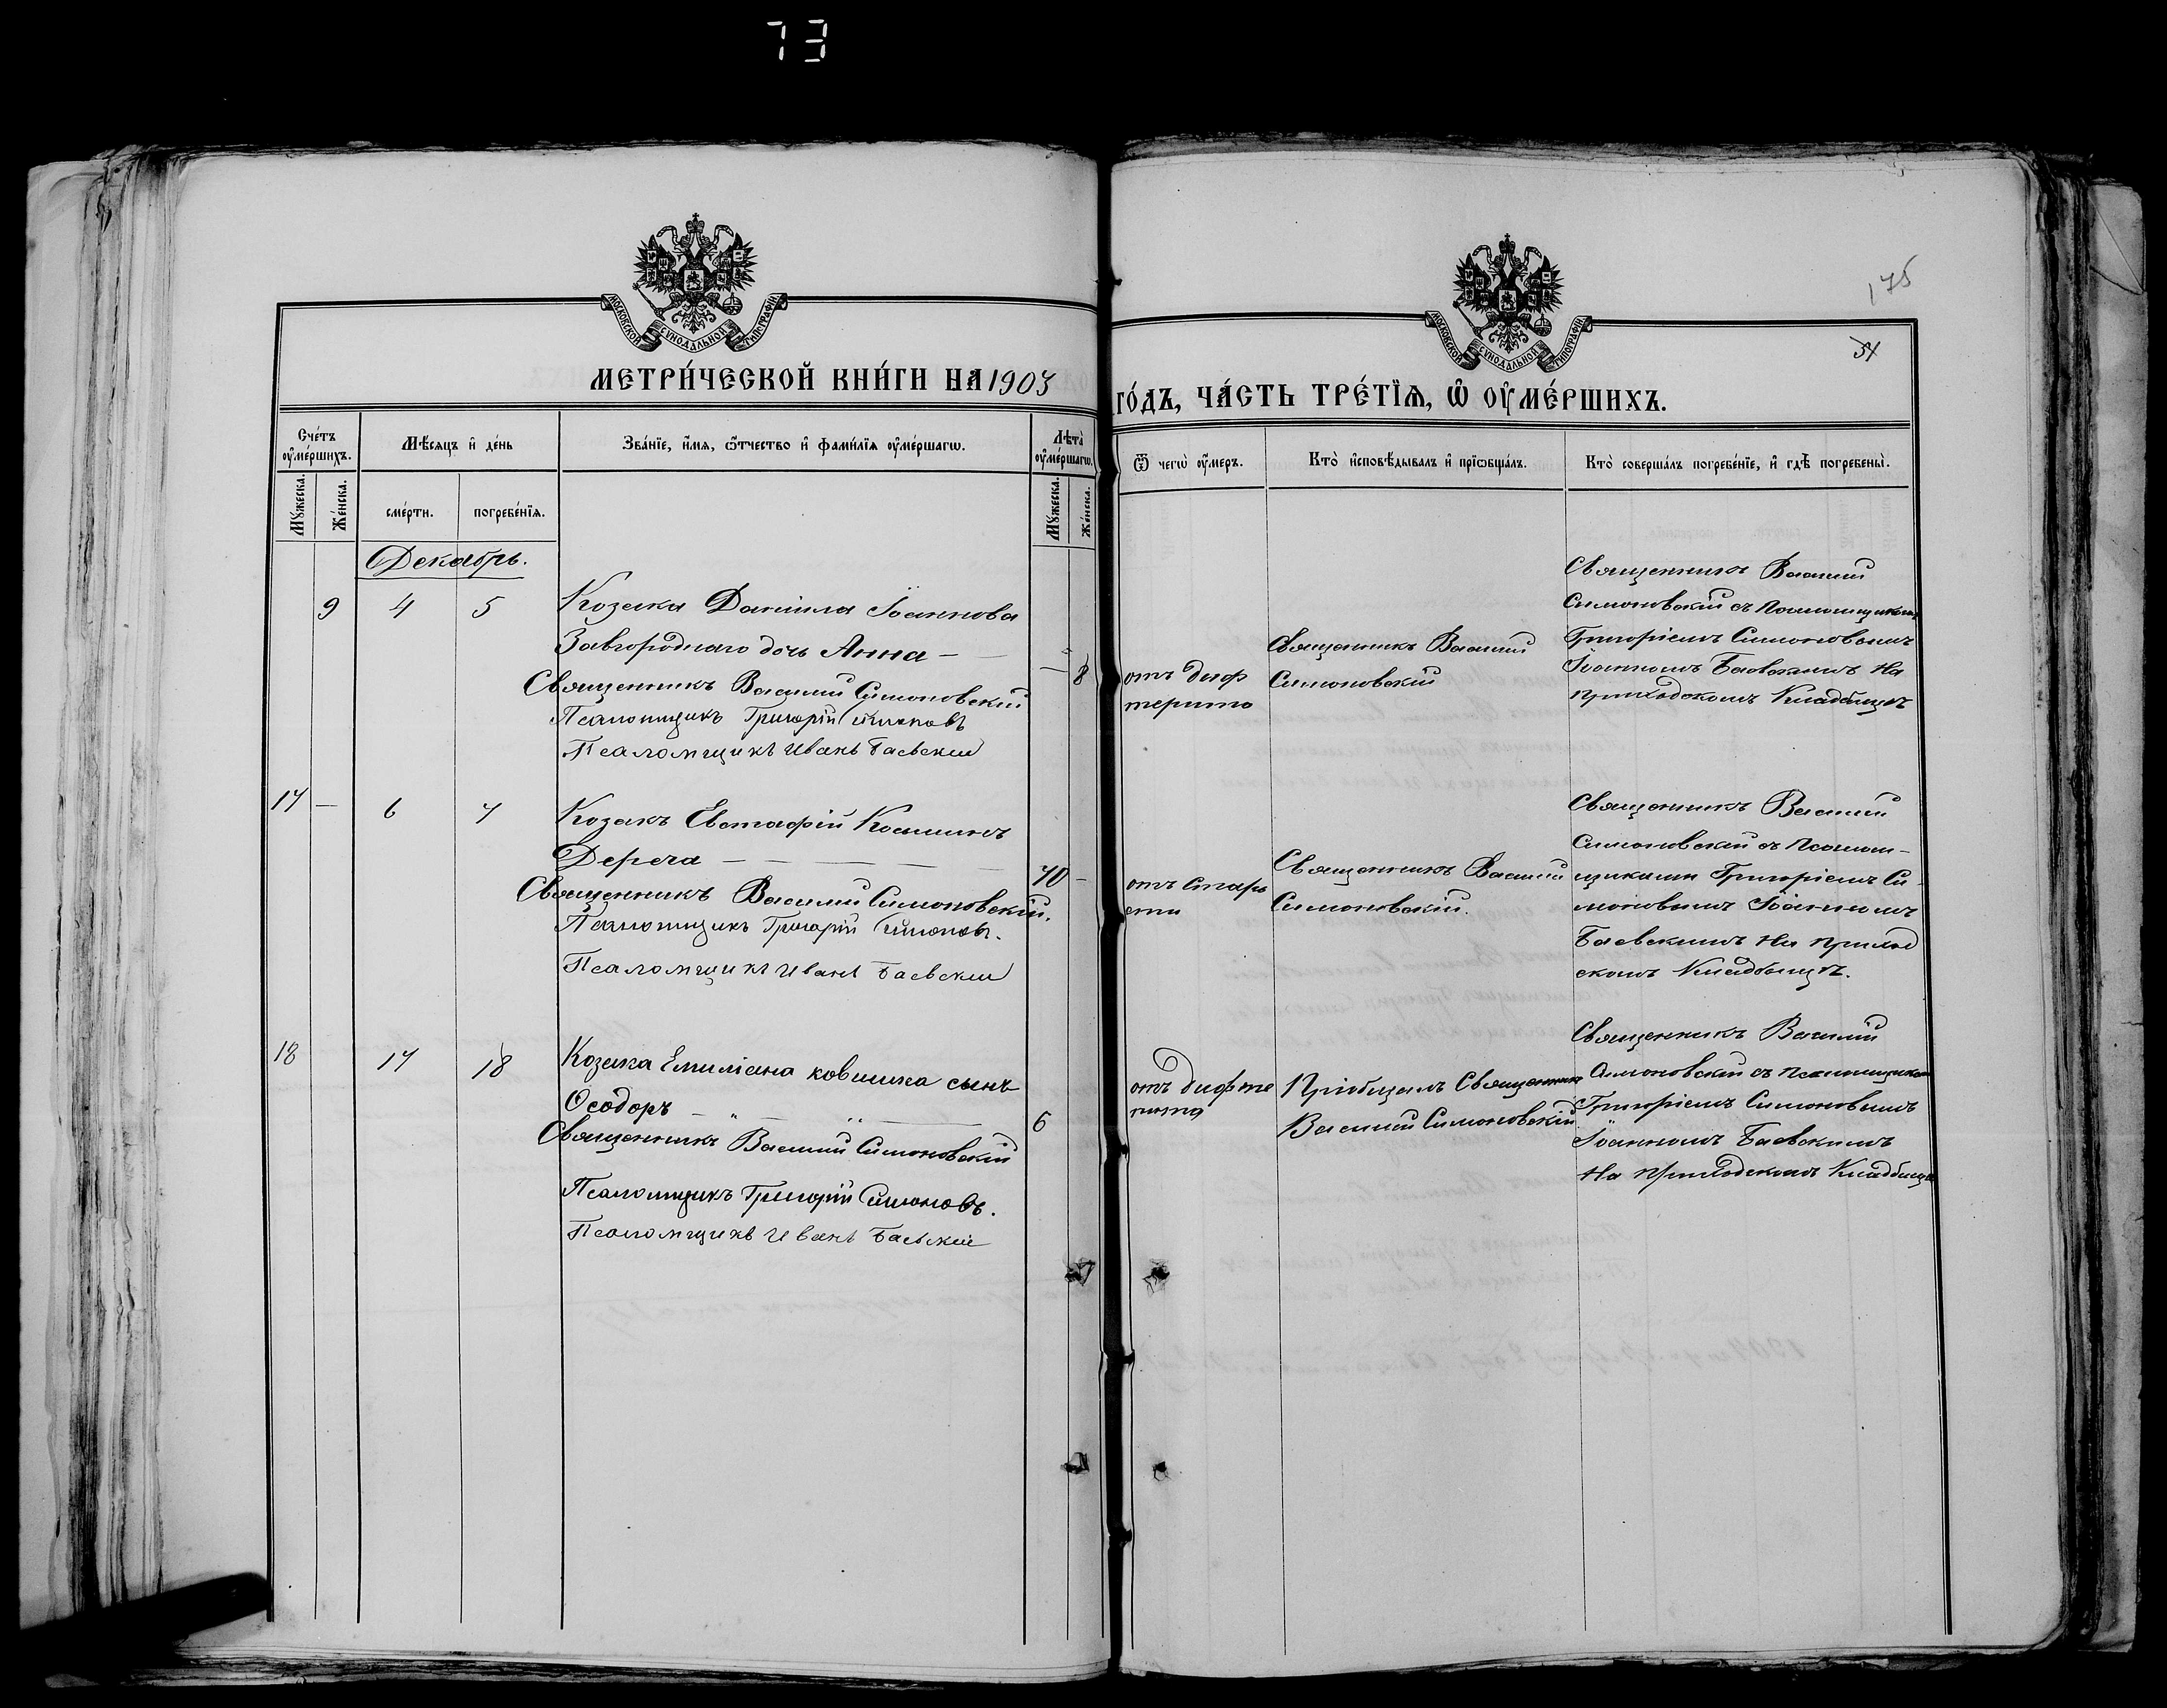 73
175
54
МОСКОВСКОЙ СѴНОДАЛЬНОЙ ТИПОГРАФІИ
МОСКОВСКОЙ СѴНОДАЛЬНОЙ ТИПОГРАФІИ
МЕТРИ́ЧЕСКОЙ КНИ́ГИ НА 1903
ГО́ДЪ, ЧА́СТЬ ТРЕ́ТЇѦ, Ѡ҆ ОУ҆МЕ́РШИХЪ.
Сче́тъ оу҆ме́ршихъ.
Мѣ́сяцъ и҆ де́нь
Зва́нїе, и҆́мѧ, ѻ҆́тчество и҆ фами́лїѧ оу҆ме́ршагѡ.
Лѣ́та оу҆ме́ршагѡ.
Ѿ чегѡ̀ оу҆́меръ.
Кто̀ и҆сповѣ́дывалъ и҆ прїѡбща́лъ.
Кто̀ соверша́лъ погребе́нїе, и҆ гдѣ̀ погребены̀.
Мꙋ́жеска.
Же́нска.
сме́рти.
погребе́нїѧ.
Мꙋ́жеска.
Же́нска.
Декабрь.
9 4 5
Козака Даніила Іоаннова
Завгороднаго дочь Анна —
8
Священникъ Василій Симоновскій
Псаломщикъ Григорій Симоновъ
Псаломщикъ Иванъ Баевскій
отъ диф
терита
Священникъ Василій
Симоновскій
Священникъ Василій
Симоновскій съ Псаломщиками
Григоріемъ Симоновымъ
Іоанномъ Баевскимъ на
приходскомъ Кладбищѣ
17 — 6 7
Козакъ Евстафій Косминъ
Дереча — — — —
70 —
Священникъ Василій Симоновскій.
Псаломщикъ Григорій Симоновъ.
Псаломщикъ Иванъ Баевскій
отъ старо
сти
Священникъ Василій
Симоновскій.
Священникъ Василій
Симоновскій съ Псалом-
щиками Григоріемъ Си-
моновымъ Іоанномъ
Баевскимъ на приход
скомъ Кладбищѣ.
18 17 18
Козака Емиліана ковшика сынъ
Ѳеодоръ
6
Священникъ Василій Симоновскій
Псаломщикъ Григорій Симоновъ.
Псаломщикъ Иванъ Баевскій
отъ дифте
рита
Пріобщалъ Священникъ
Василій Симоновскій
Священникъ Василій
Симоновскій съ Псаломщиками
Григоріемъ Симоновымъ
Іоанномъ Баевскимъ
на Приходскомъ Кладбищѣ